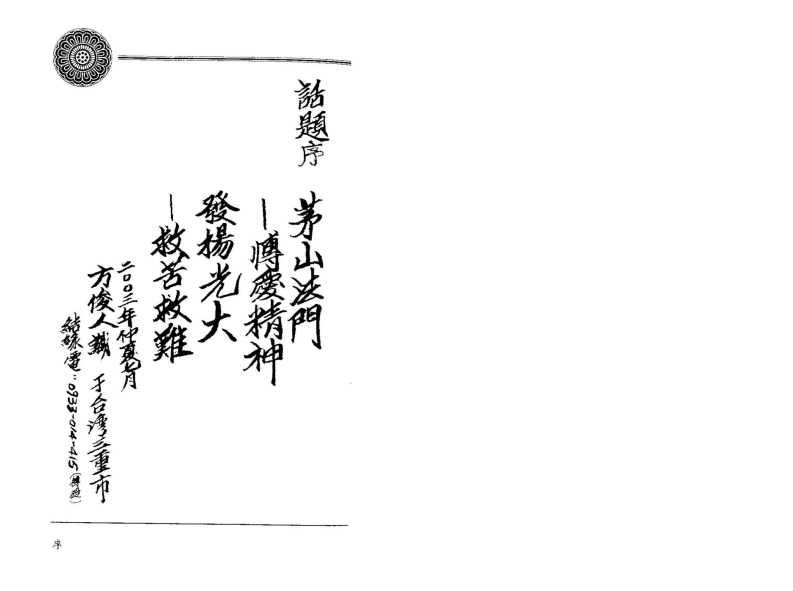 話題序
茅山法門
—博愛精神
發揚光大
—救苦救難
二00三年仲夏七月
方俊人識 于台湾三重市
結緣電：0933-014-415
序